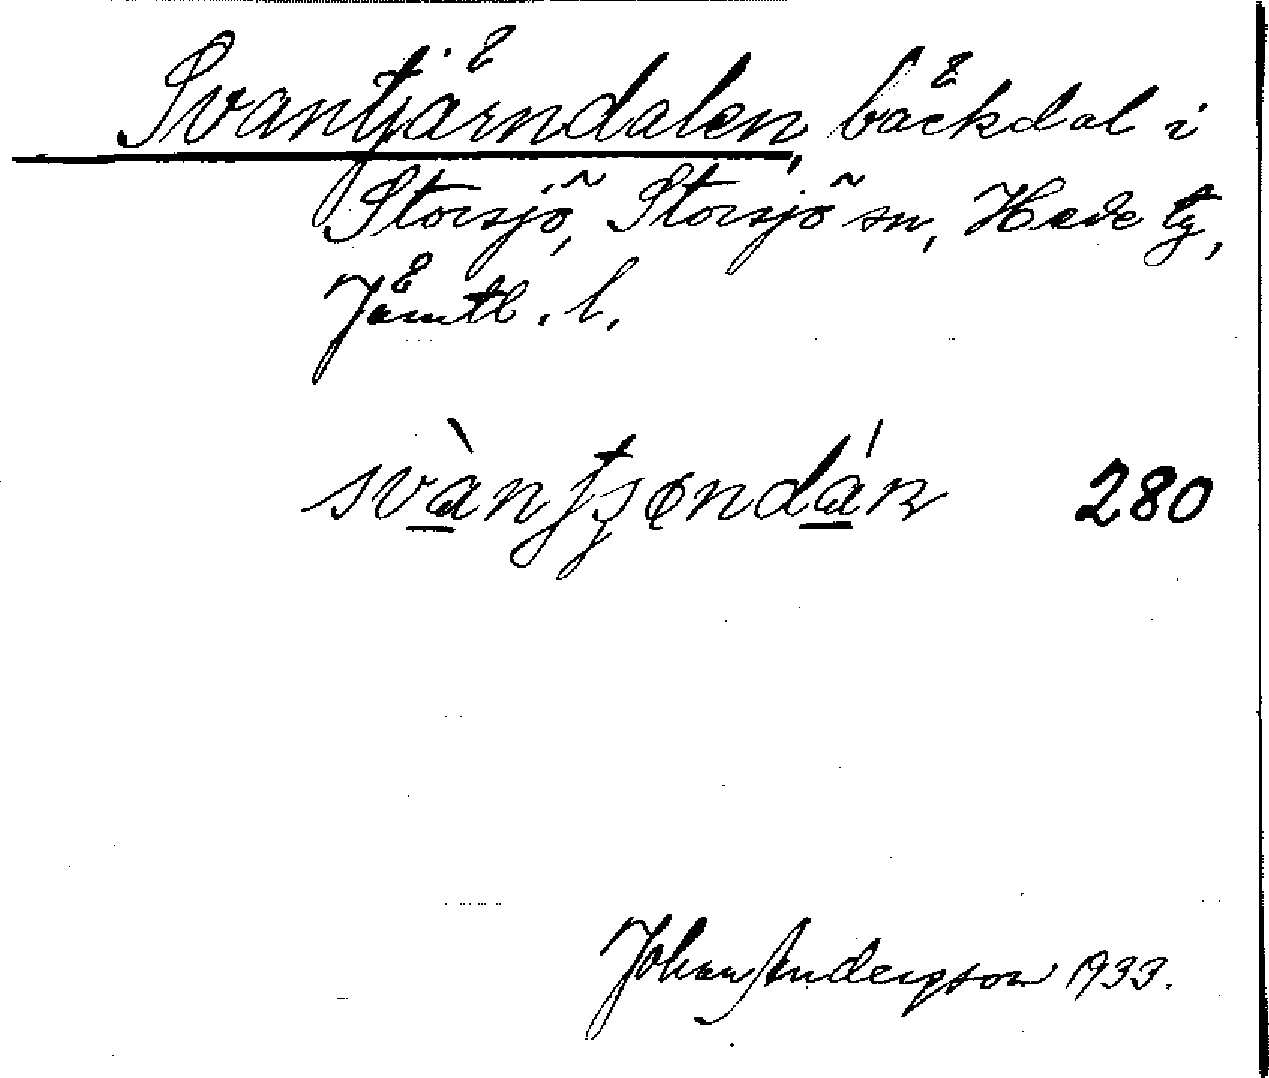 Svantjärndalen, bäckdal i
Storsjö, Storsjö sn, Hede tg,
Jämtl. l.
280
Johan Andergson 1933.